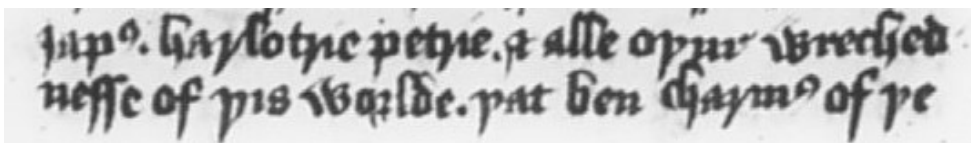 iapꝰ. harlotrie petrie. ⁊ alle oþur wrecched
nesse of þis worlde. þat ben charmꝰ of þe